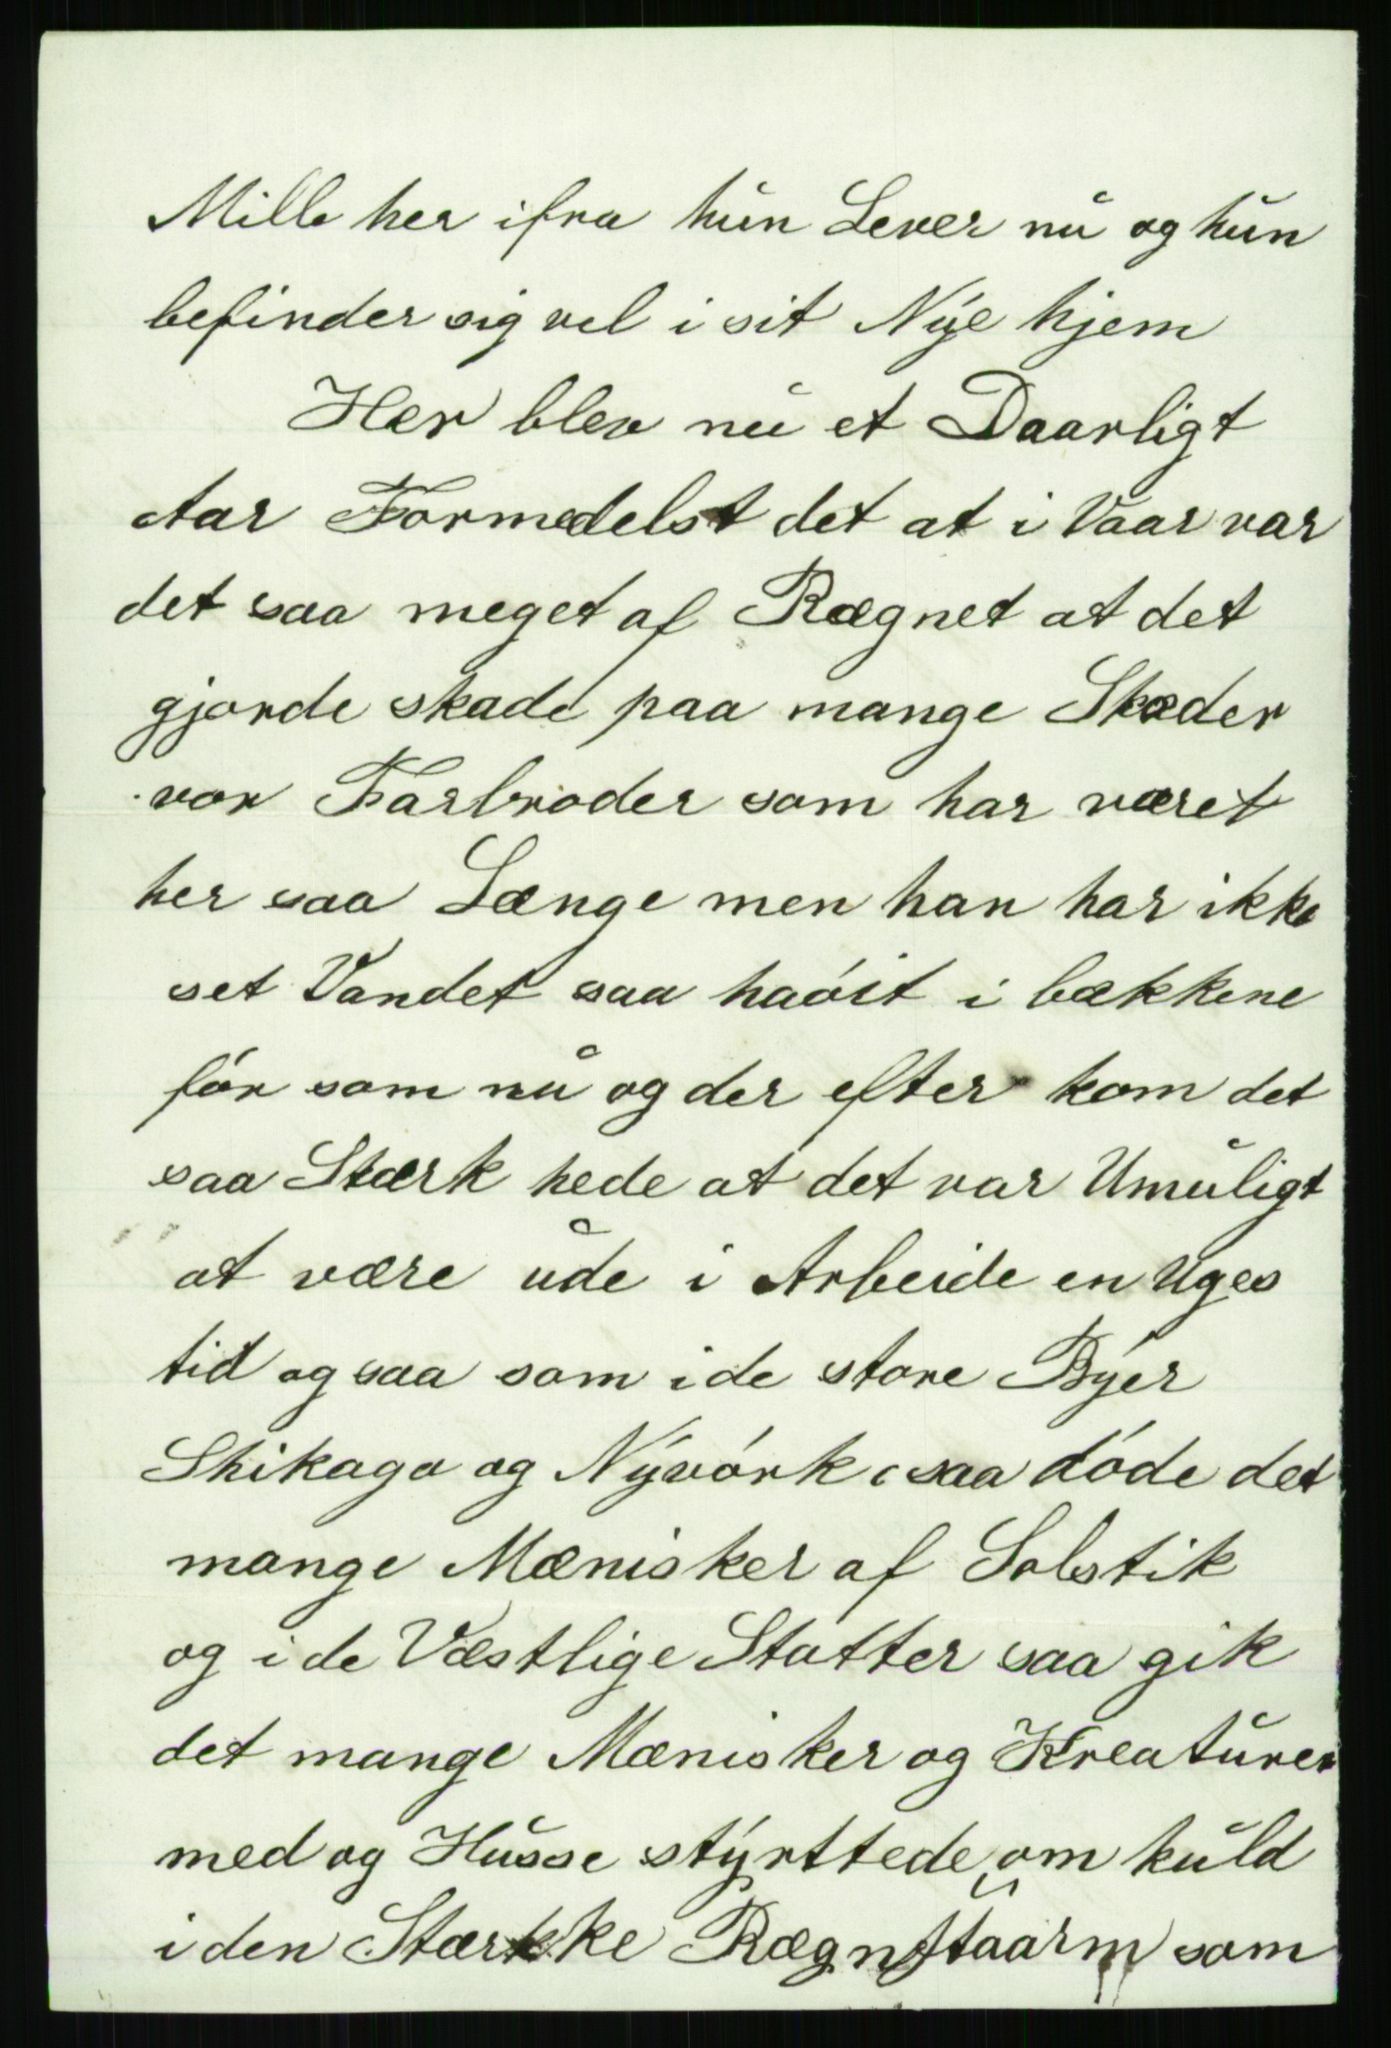 Mille her ifra hun Lever nu og hun
befinder sig vel i sit Nÿe hjem
Her blev nu et Daarligt
Aar Formedelst det at i Vaar var
det saa meget af Rægnet at det
gjorde skade paa mange Stæder
vor Farbroder som har været
her saa Længe men han har ikke
set Vandet saa haóit i bækkene
fór som nu og der efter kom det
saa Stærk hede at det var Umuligt
at være ude i Arbeide en Uges
tid og saa som i de store Bÿer
Shikago og Nÿvórk saa dóde det
mange Mænisker af Solstik
og i de Væstlige Statter saa gik
det mange Mænisker og Kreaturer
med og Husse stÿrttede om kuld
i den Stærkke Rægnstaarm som